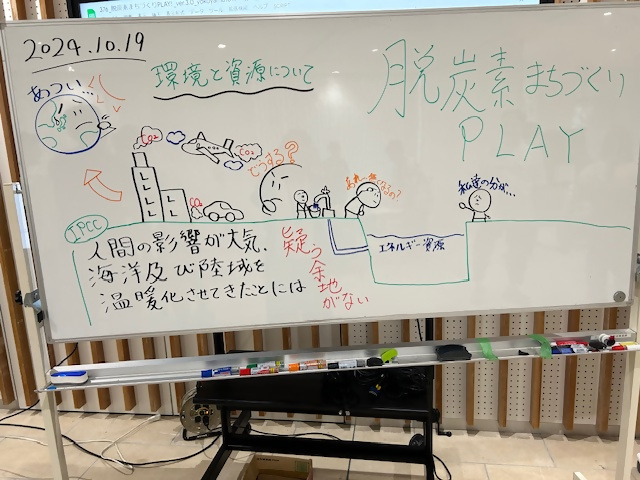 2024.10.19
環境と資源について
脱炭素まちづくり
PLAY
あつい…
CO2
CO2
CO2
どうする?
私達の分が…
エネルギー資源
IPCC
人間の影響が大気、
海洋及び陸域を
温暖化させてきたことには
疑う余地がない